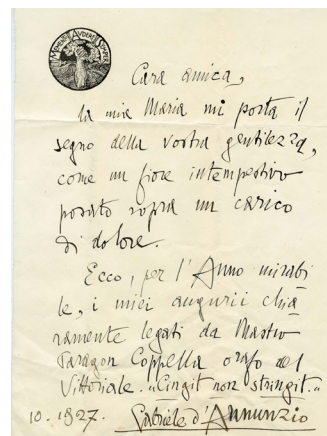 MEMENTO AUDERE SEMPER
Cara amica,
la mia Maria mi porta il
segno della vostra gentilezza,
come un fiore intempestivo
posato sopra un carico
di dolore.
Ecco, per l'Anno mirabi
le, i miei augurii chia
ramente legati da Mastro
Paragon Coppella orafo del
Vittoriale. "Cingit non stringit."
10.1927. Gabriele d'Annunzio